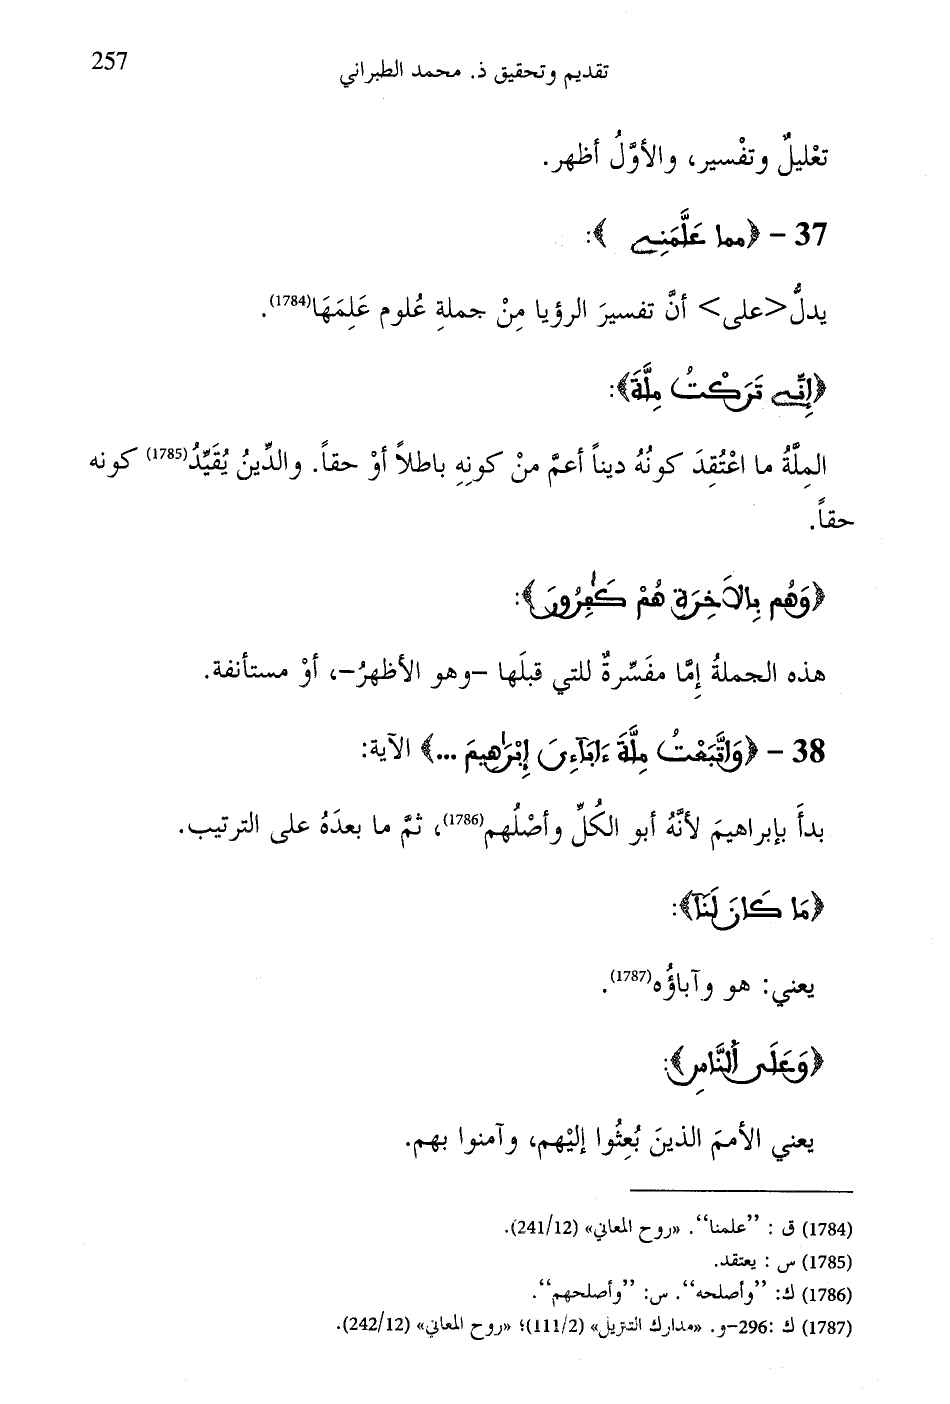 257
تقديم وتحقيق ذ. محمد الطبراني
تعْليلٌ وتفْسير، والأوَّلُ أظهر.
37 – ﴿مما عَلَّمَنِے ﴾:
يدلُّ <على> أنَّ تفسيرَ الرؤيا مِنْ جملةِ عُلوم عَلِمَهَا(1784).
﴿إِنِّے تَرَكْتُ مِلَّةَ﴾:
المِلَّةُ ما اعْتُقِدَ كونُهُ ديناً أعمّ منْ كونِهِ باطلاً أوْ حقاً. والدِّينُ يُقَيِّدُ(1785) كونه
حقاً.
﴿وَهُم بِالَاخِرَةِ هُمْ كَٰفِرُونَ﴾:
هذه الجملةُ إمَّا مفَسِّرةٌ للتي قبلَها –وهو الأظهرُ–، أوْ مستأنفة.
38 – ﴿وَاتَّبَعْتُ مِلَّةَ ءَابَآءِىَ إِبْرَٰهِيمَ ...﴾ الآية:
بدأَ بإبراهيمَ لأنَّهُ أبو الكُلِّ وأصْلُهم(1786)، ثمَّ ما بعدَهُ على الترتيب.
﴿مَا كَانَ لَنَآ﴾:
يعني: هو وآباؤُه(1787).
﴿وَعَلَى اَلنَّاسِ﴾:
يعني الأممَ الذينَ بُعِثُوا إليْهم، وآمنوا بهم.
(1784) ق : ’’علمنا‘‘. «روح المعاني» (241/12).
(1785) س : يعتقد.
(1786) ك: ’’وأصلحه‘‘. س: ’’وأصلحهم‘‘.
(1787) ك :296–و. «مدارك التنزيل» (111/2)؛ «روح المعاني» (242/12).